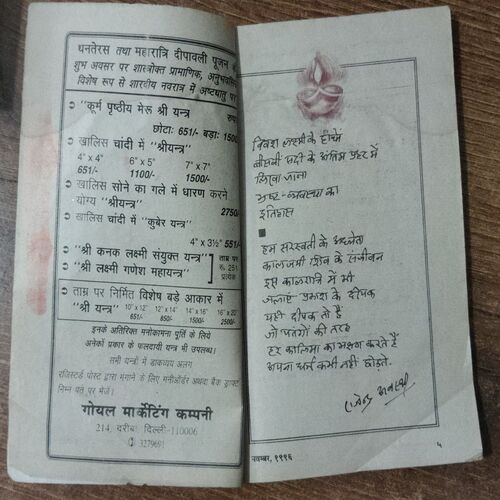 धनतेरस तथा महारात्रि दीपावली पूजन
शुभ अवसर पर शास्त्रोक्त प्रामाणिक, अनुभवसिद्ध
विशेष रूप से शारदीय नवरात्र में अष्टधातु पर
"कूर्म पृष्ठीय मेरू श्री यन्त्र
छोटाः 651/- बड़ाः 1500
खालिस चांदी में "श्रीयन्त्र"
4" x 4" 6" x 5" 7" x 7"
651/- 1100/- 1500/-
खालिस सोने का गले में धारण करने
योग्य "श्रीयन्त्र" 2750/-
खालिस चांदी में "कुबेर यन्त्र"
4" x 3½" 551/-
"श्री कनक लक्ष्मी संयुक्त यन्त्र" ताम्र पर
"श्री लक्ष्मी गणेश महायन्त्र" रु० 251 प्रत्येक
ताम्र पर निर्मित विशेष बड़े आकार में
"श्री यन्त्र" 10" x 10" 12" x 12" 14" x 14" 16" x 16" 20"
651/- 850/- 1500/- 2500/-
इनके अतिरिक्त मनोकामना पूर्ति के लिये
अनेकों प्रकार के फलदायी यन्त्र भी उपलब्ध।
सभी यन्त्रों में डाकव्यय अलग
रजिस्टर्ड पोस्ट द्वारा मंगाने के लिए मनीऑर्डर अथवा बैंक ड्राफ्ट
निम्न पते पर भेजें।
गोयल मार्केटिंग कम्पनी
214, दरीबा दिल्ली-110006
3279691
विवश लक्ष्मी के हाथों
बीसवीं सदी के अंतिम प्रहर में
लिखा जाना
भ्रष्ट-व्यवस्था का
इतिहास
हम सरस्वती के अध्येता
कालजयी शिव के संजीवन
इस कालरात्रि में भी
जलाएं प्रकाश के दीपक
यही दीपक तो हैं
जो पतंगों की तरह
हर कालिमा का भक्षण करते हैं
अपना धर्म कभी नहीं छोड़ते.
नवम्बर, १९९६
५